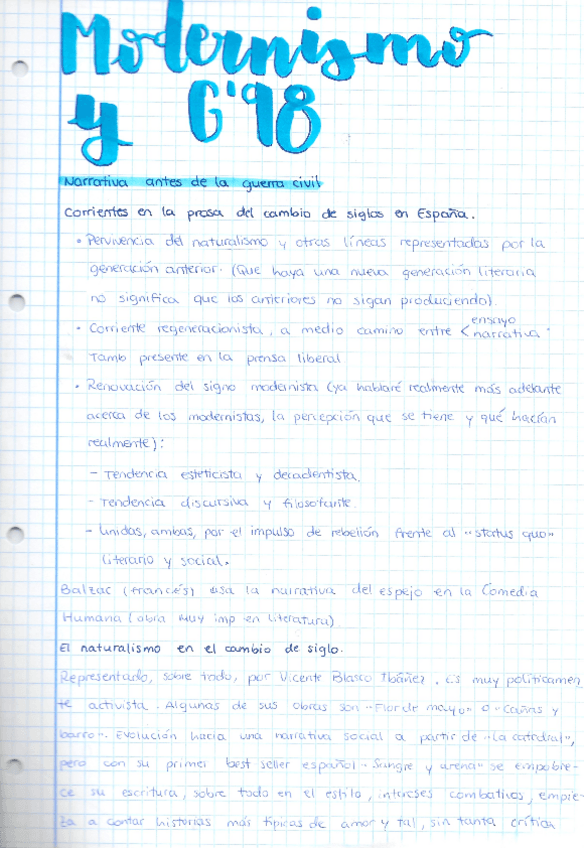 Modernismo
y G'98
Narrativa antes de la guerra civil
Corrientes en la prosa del cambio de siglos en España.
• Pervivencia del naturalismo y otras líneas representadas por la
generación anterior. (Que haya una nueva generación literaria
no significa que los anteriores no sigan produciendo).
• Corriente regeneracionista, a medio camino entre < ensayo
narrativa.
Tamb presente en la prensa liberal
• Renovación del signo modernista (ya hablaré realmente más adelante
acerca de los modernistas, la percepción que se tiene y qué hacían
realmente):
- Tendencia esteticista y decadentista.
- Tendencia discursiva y filosofante.
- Unidas, ambas, por el impulso de rebelión frente al "status quo"
literario y social.
Balzac (francés) usa la narrativa del espejo en la Comedia
Humana (obra muy imp en literatura)
El naturalismo en el cambio de siglo.
Representado, sobre todo, por Vicente Blasco Ibáñez. Es muy políticamen
te activista. Algunas de sus obras son "Flor de mayo" o "Cañas y
barro". Evolución hacia una narrativa social a partir de "La catedral",
pero con su primer best seller español "Sangre y arena" se empobre-
ce su escritura, sobre todo en el estilo, intereses combativos, empie-
za a contar historias más típicas de amor y tal, sin tanta crítica